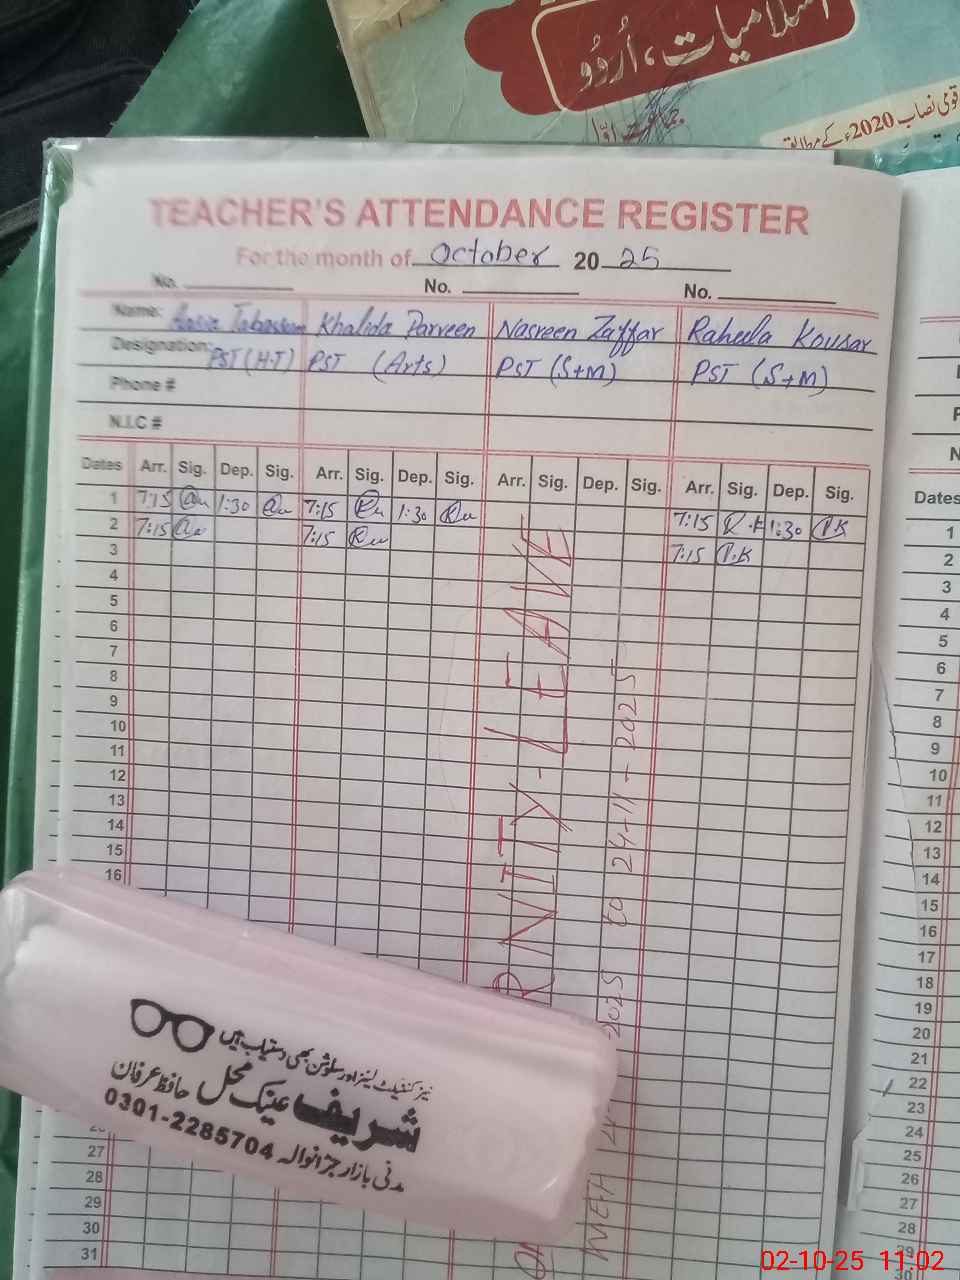 اسلامیات، اُردُو
قومی نصاب 2020ء کے مطابق
TEACHER'S ATTENDANCE REGISTER
For the month of October 2025
No. No. No.
Name: Tabassum Khalida Parveen Nasreen Zaffar Raheela Kousar
Designation: PST (H.T) PST (Arts) PST (S+M) PST (S+M)
Phone #
N.I.C #
Dates Arr. Sig. Dep. Sig. Arr. Sig. Dep. Sig. Arr. Sig. Dep. Sig. Arr. Sig. Dep. Sig.
1 7:15 1:30 7:15 1:30 7:15 R.K 1:30 R.K
2 7:15 7:15 7:15 R.K
3
4
5
6
7
8
9
10
11
12
13
14
15
16
27
28
29
30
31
RNITY-LEAVE
2025 to 24-11-2025
Dates
1
2
3
4
5
6
7
8
9
10
11
12
13
14
15
16
17
18
19
20
21
22
23
24
25
26
27
28
29
30
نیز کنٹیکٹ لینز اور سلوشن بھی دستیاب ہیں
شریف عینک محل حافظ عرفان
0301-2285704 مدنی بازار جڑانوالہ
02-10-25 11:02